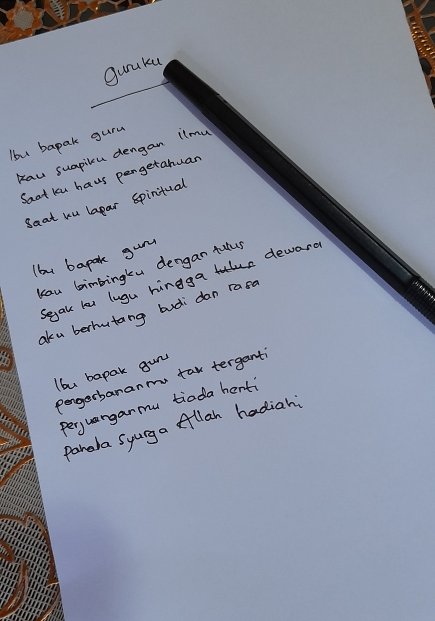 guruku
Ibu bapak guru
kau suapiku dengan ilmu
Saat ku haus pengetahuan
Saat ku lapar spiritual
Ibu bapak guru
kau bimbingku dengan tulus
Sejak ku lugu hingga tulus dewasa
aku berhutang budi dan rasa
Ibu bapak guru
pengorbananmu tak terganti
perjuanganmu tiada henti
pahala syurga Allah hadiahi